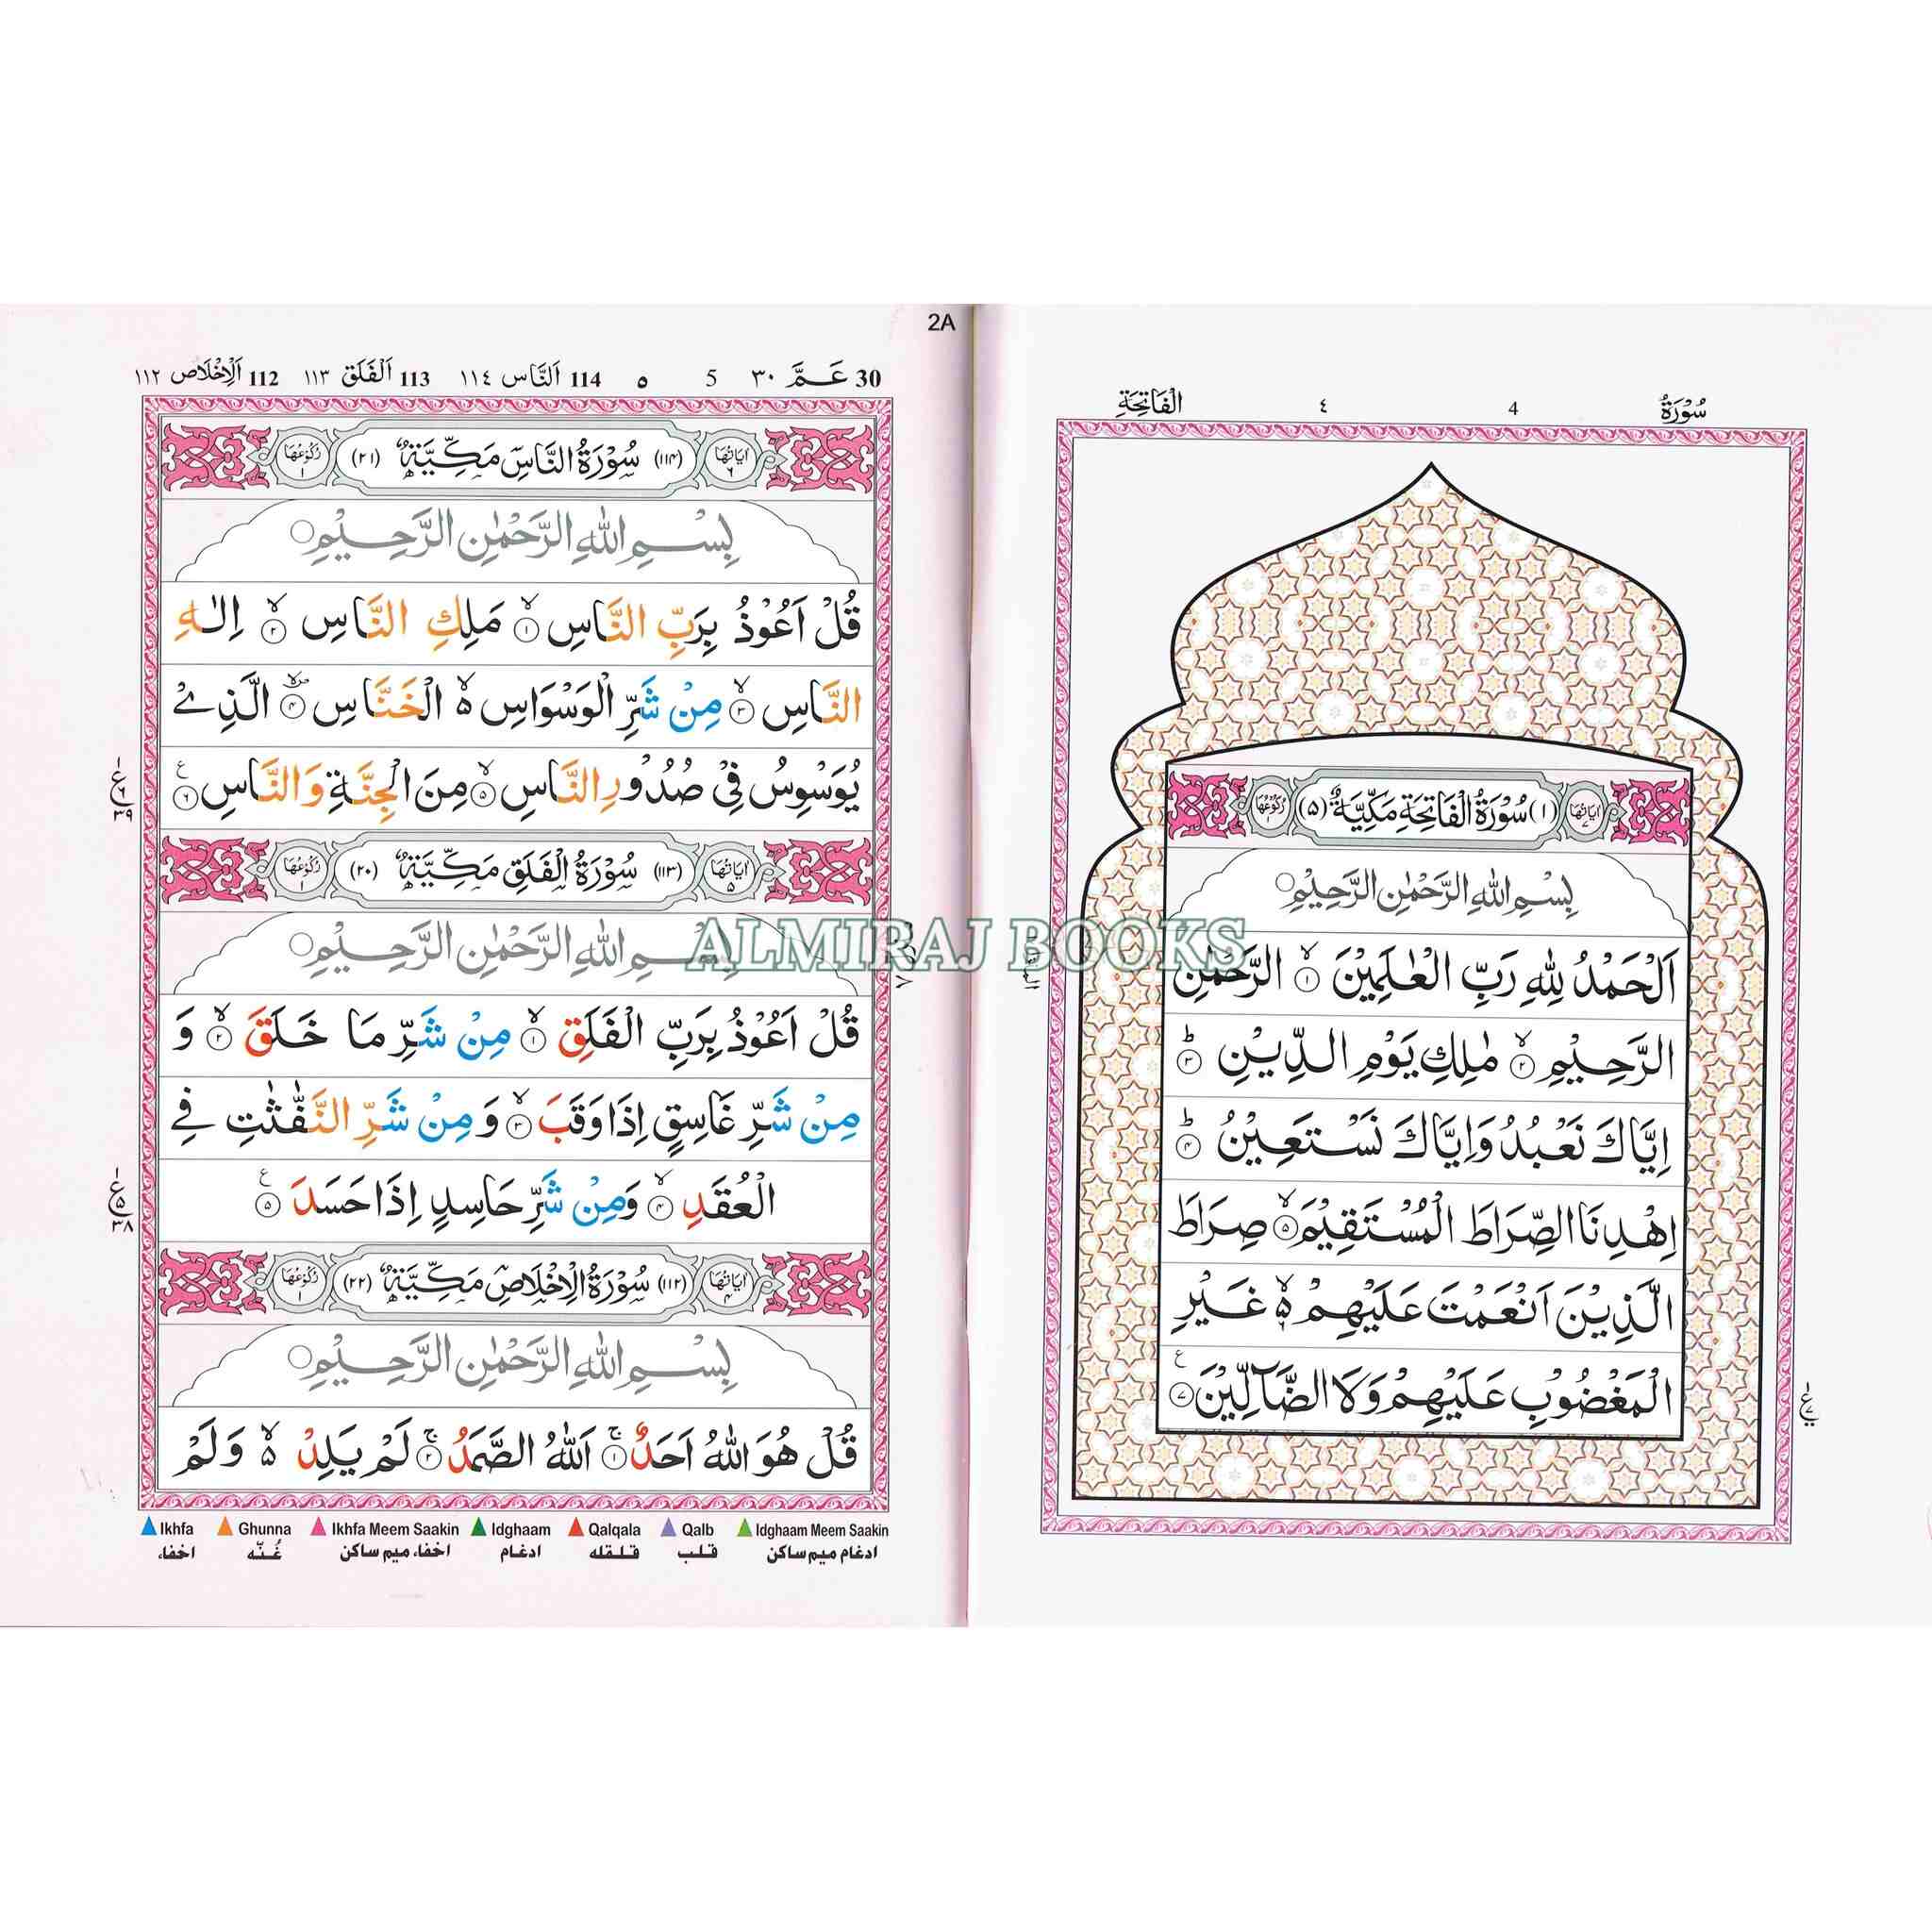 سُوْرَةُ 4 ٤ الْفَاتِحَةِ
اٰيَاتُهَا ٧ (١) سُوْرَةُ الْفَاتِحَةِ مَكِّيَّةٌ (٥) رُكُوْعُهَا ١
بِسْمِ اللّٰهِ الرَّحْمٰنِ الرَّحِيْمِ
اَلْحَمْدُ لِلّٰهِ رَبِّ الْعٰلَمِيْنَ ۙ﴿١﴾ الرَّحْمٰنِ
الرَّحِيْمِ ۙ﴿٢﴾ مٰلِكِ يَوْمِ الدِّيْنِ ؕ﴿٣﴾
اِيَّاكَ نَعْبُدُ وَاِيَّاكَ نَسْتَعِيْنُ ؕ﴿٤﴾
اِهْدِنَا الصِّرَاطَ الْمُسْتَقِيْمَ ۙ﴿٥﴾ صِرَاطَ
الَّذِيْنَ اَنْعَمْتَ عَلَيْهِمْ ۙ۬ۦ غَيْرِ
الْمَغْضُوْبِ عَلَيْهِمْ وَلَا الضَّآلِّيْنَ ﴿٧﴾
2A
30 عَمَّ ٣٠ 5 ٥ 114 اَلنَّاس ١١٤ 113 اَلْفَلَق ١١٣ 112 اَلْاِخْلَاص ١١٢
اٰيَاتُهَا ٦ (١١٤) سُوْرَةُ النَّاسِ مَكِّيَّةٌ (٢١) رُكُوْعُهَا ١
بِسْمِ اللّٰهِ الرَّحْمٰنِ الرَّحِيْمِ
قُلْ اَعُوْذُ بِرَبِّ النَّاسِ ۙ﴿١﴾ مَلِكِ النَّاسِ ۙ﴿٢﴾ اِلٰهِ
النَّاسِ ۙ﴿٣﴾ مِنْ شَرِّ الْوَسْوَاسِ ۙ۬ الْخَنَّاسِ ﴿٤﴾ الَّذِيْ
يُوَسْوِسُ فِيْ صُدُوْرِ النَّاسِ ۙ﴿٥﴾ مِنَ الْجِنَّةِ وَالنَّاسِ ﴿٦﴾
اٰيَاتُهَا ٥ (١١٣) سُوْرَةُ الْفَلَقِ مَكِّيَّةٌ (٢٠) رُكُوْعُهَا ١
بِسْمِ اللّٰهِ الرَّحْمٰنِ الرَّحِيْمِ
قُلْ اَعُوْذُ بِرَبِّ الْفَلَقِ ۙ﴿١﴾ مِنْ شَرِّ مَا خَلَقَ ۙ﴿٢﴾ وَ
مِنْ شَرِّ غَاسِقٍ اِذَا وَقَبَ ۙ﴿٣﴾ وَ مِنْ شَرِّ النَّفّٰثٰتِ فِي
الْعُقَدِ ۙ﴿٤﴾ وَمِنْ شَرِّ حَاسِدٍ اِذَا حَسَدَ ﴿٥﴾
اٰيَاتُهَا ٤ (١١٢) سُوْرَةُ الْاِخْلَاصِ مَكِّيَّةٌ (٢٢) رُكُوْعُهَا ١
بِسْمِ اللّٰهِ الرَّحْمٰنِ الرَّحِيْمِ
قُلْ هُوَ اللّٰهُ اَحَدٌ ۚ﴿١﴾ اَللّٰهُ الصَّمَدُ ۚ﴿٢﴾ لَمْ يَلِدْ ۙ۬ وَلَمْ
Ikhfa Ghunna Ikhfa Meem Saakin Idghaam Qalqala Qalb Idghaam Meem Saakin
اخفاء غُنّه اخفاء میم ساکن ادغام قلقله قلب ادغام میم ساکن
ALMIRAJ BOOKS